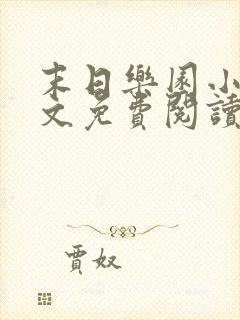 末日樂園小
文免費閱讀
賈奴